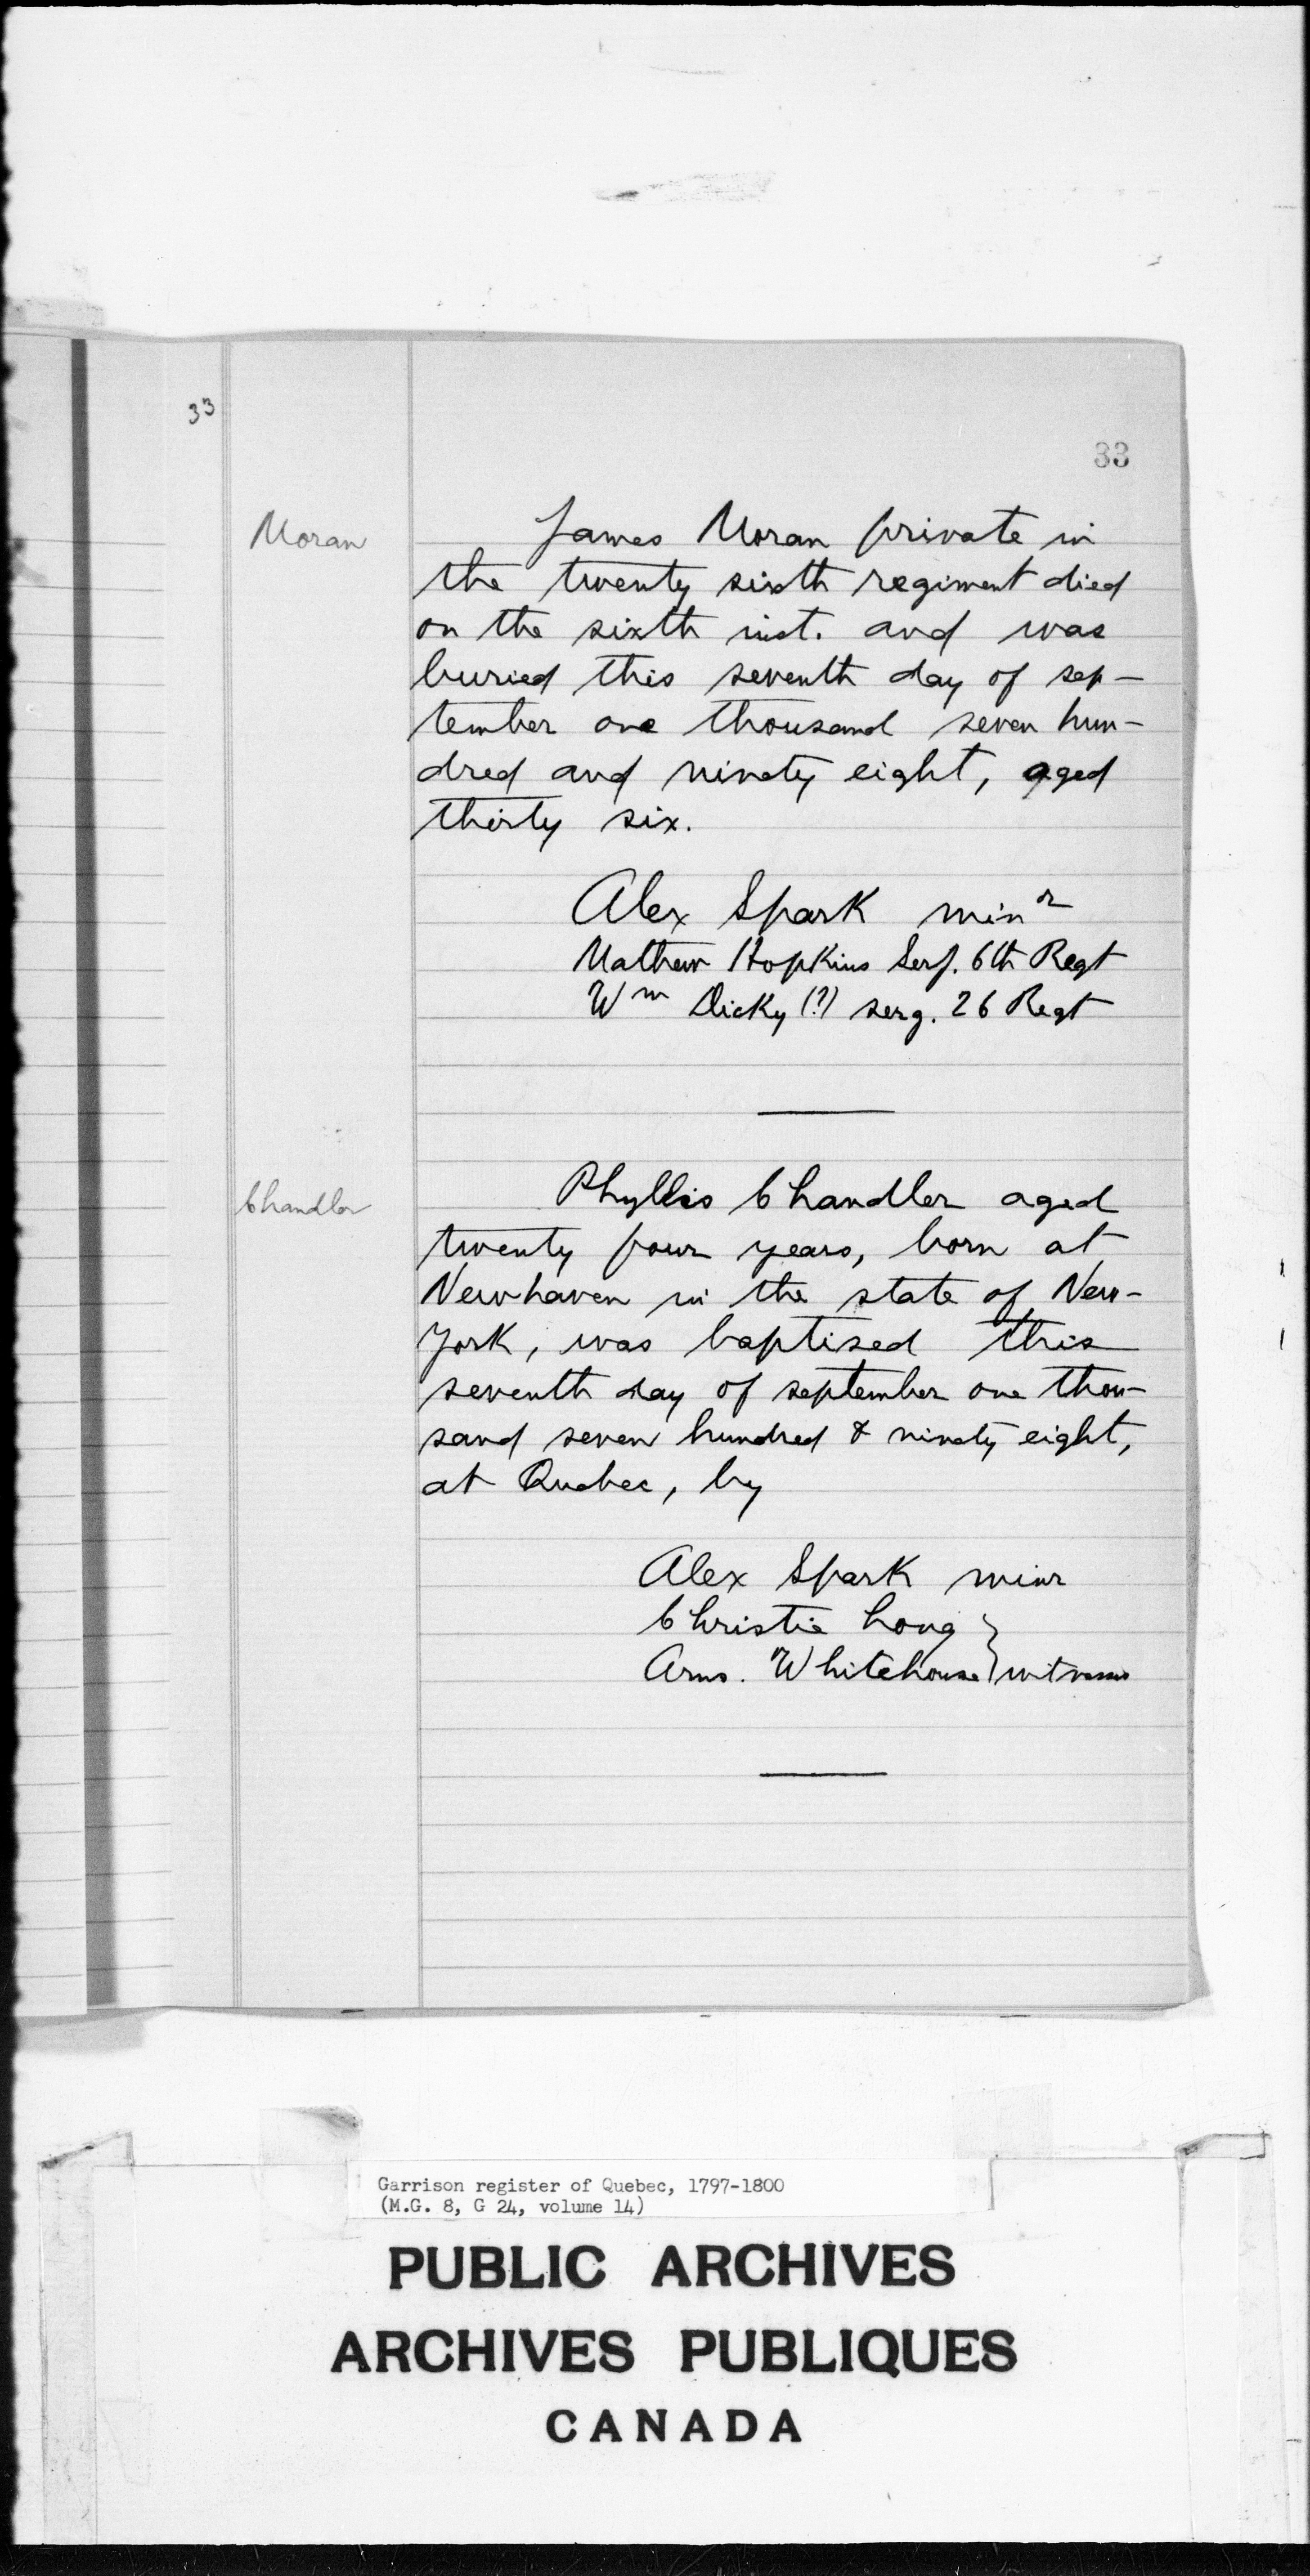 33
33
Moran
James Moran private in
the twenty sixth regiment died
on the sixth inst. and was
buried this seventh day of sep-
tember one thousand seven hun-
dred and ninety eight, aged
thirty six.
Alex Spark minr
Mathew Hopkins Serj. 6th Regt
Wm Dicky (?) serg. 26 Regt
Chandler
Phyllis Chandler aged
twenty four years, born at
Newhaven in the state of New-
york, was baptised this
seventh day of september one thou-
sand seven hundred & ninety eight,
at Quebec, by
Alex Spark minr
Christie Long }
Arms. Whitehouse } witnesses
Garrison register of Quebec, 1797-1800
(M.G. 8, G 24, volume 14)
PUBLIC ARCHIVES
ARCHIVES PUBLIQUES
CANADA